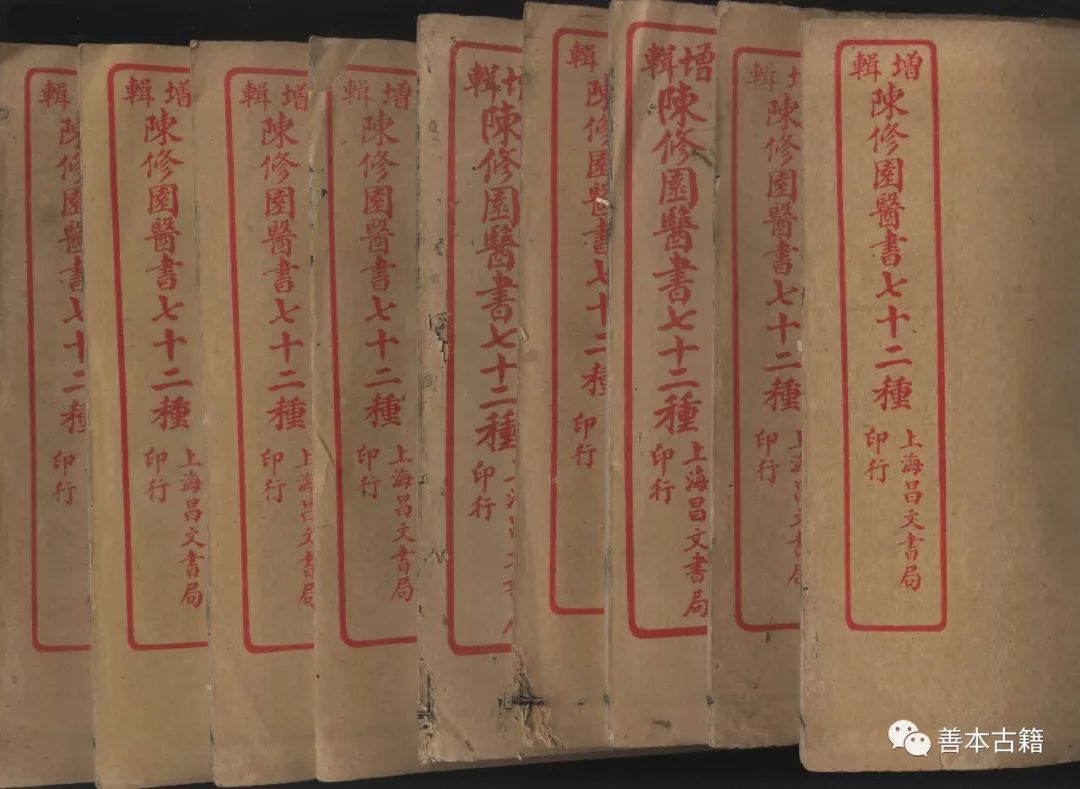 增輯
陳修園醫書七十二種
上海昌文書局
印行
增輯
陳修園醫書七十二種
上海昌文書局
印行
增輯
陳修園醫書七十二種
上海昌文書局
印行
輯
陳修園醫書七十二種
印行
增輯
陳修園醫書七十二種
印行
增輯
陳修園醫書七十二種
上海昌文書局
印行
增輯
陳修園醫書七十二種
上海昌文書局
印行
增輯
陳修園醫書七十二種
上海昌文書局
印行
輯
陳修園醫書七十二種
印行
善本古籍